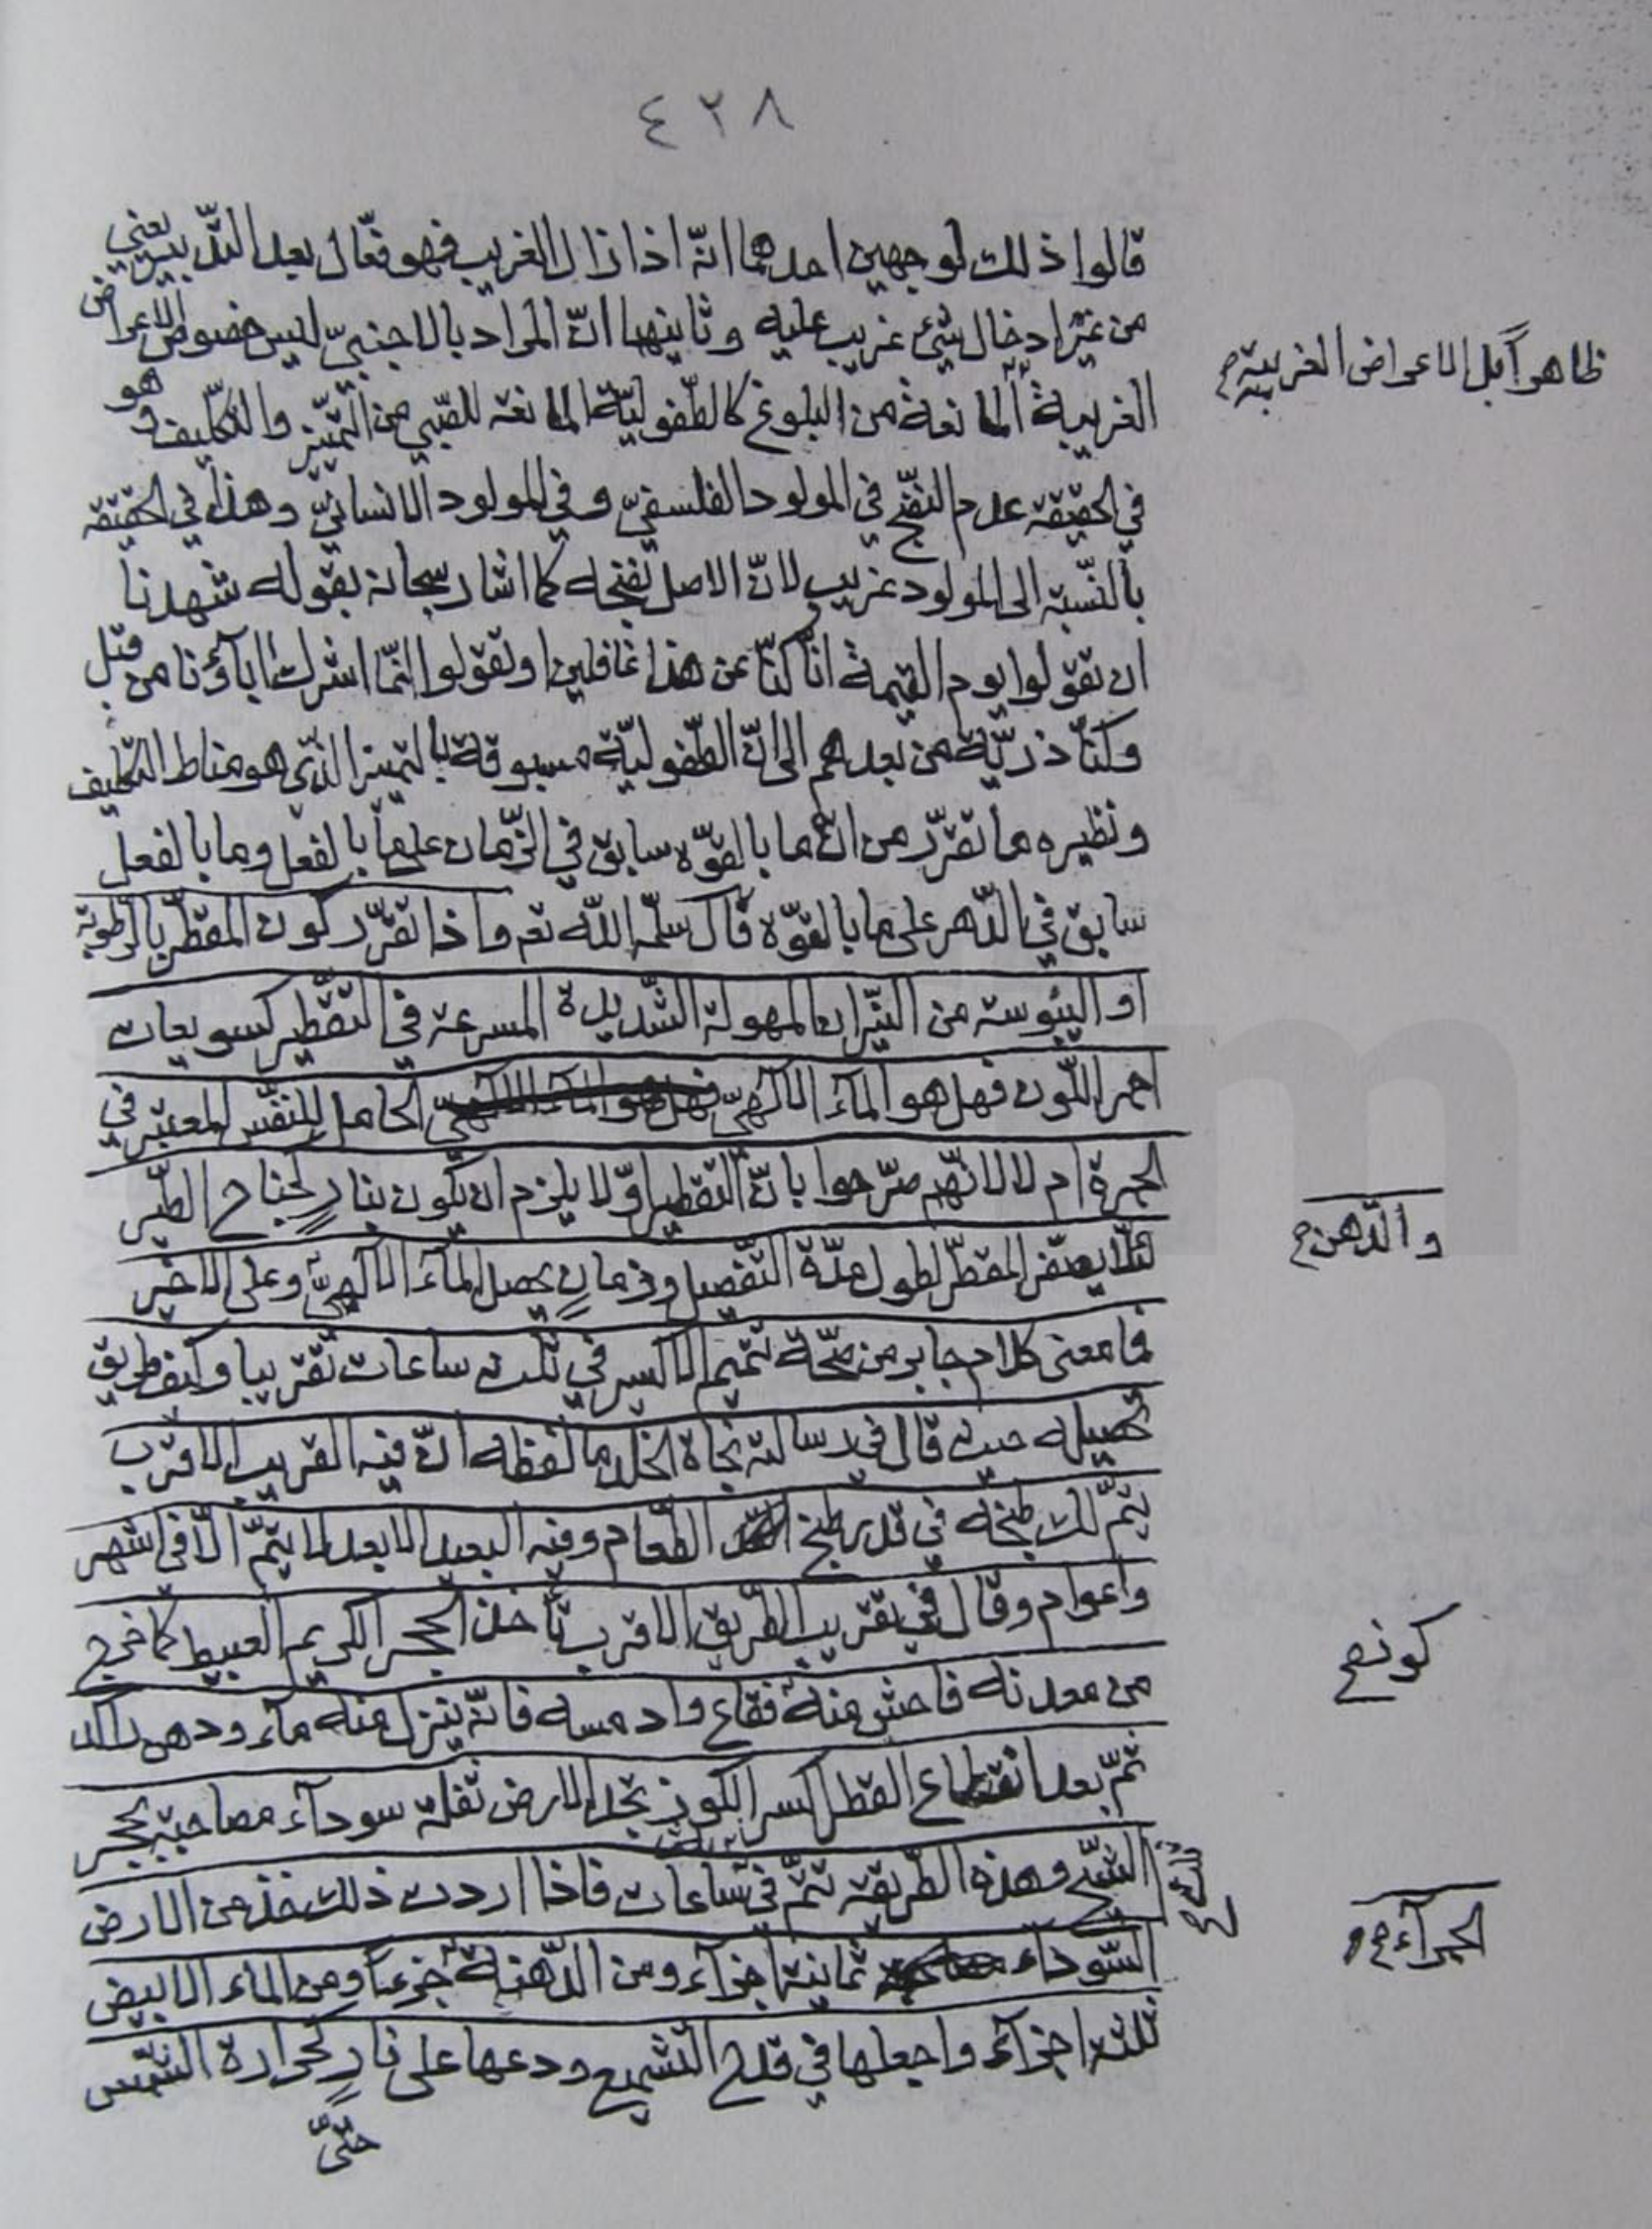 ٤٢٨
قالوا ذلك لوجهين احدهما انّه اذا زال الغريب فهو فعّال بعد التّدبير يعني
من غير ادخال شيئ غريب عليه وثانيهما انّ المراد بالاجنبيّ ليس خصوص الاعراض
ظاهراً بل الاعراض الغريبة صح
الغريبة المانعة من البلوغ كالطّفوليّة المانعة للصّبي من التّميّز والتكليف وهو
في الحقيقة عدم النّضج في المولود الفلسفيّ وفي المولود الانسانيّ وهذا في الحقيقة
بالنّسبة الى المولود غريب لانّ الاصل نضجه كما اشار سبحانه بقوله شهدنا
ان تقولوا يوم القيمة انّا كنّا عن هذا غافلين او تقولوا انّما اشرك اباؤنا من قبل
وكنّا ذريّة من بعدهم الى انّ الطّفوليّة مسبوقة بالتميز الّذي هو مناط التكليف
ونظيره ما تقرّر من انّ ما بالقوّة سابق في الزّمان على ما بالفعل وما بالفعل
سابق في الدّهر على ما بالقوّة قال سلّمه اللّه تعـ واذا تقرّر كون المقطّر بالرّطوبة
او اليبوسة من النّيران المهولة الشّديدة المسرعة في التقطير كسويعات
احمر اللّون فهل هو المآء الالٓهيّ الحامل للنّفس المعتبر في
الحمرة ام لا لانّهم صرّحوا بانّ التّقطير اوّلا يلزم ان يكون بنارٍ لجناح الطّير
والدّهن صح
لئلّا يصفر المقطّر لطول مدّة التّفصيل وزمانٍ يحصل المآء الالٓهيّ وعلى الاخير
فما معنى كلام جابر من صحّة تتميم الاكسير في ثلث ساعات تقريبا وكيف طريق
تحصيله حيث قال في رسالته نجاة الخلد ما لفظه انّ فيه القريب الاقرب
يتمّ لك طبخه في قدر طبخ الطّعام وفيه البعيد الابعد لا يتمّ الّا في اشهر
واعوام وقال في تقريب الطّريق الاقرب تأخذ الحجر الكريم العبيط كما خرج
كونه صح
من معدنه فاحش منه فقاع وادمسه فانّه ينزل منه مآء ودهن
ثمّ بعد انقطاع القطر اكسر الكوز تجد الارض ثفلة سودآء مصاحبة بحجر
الشّبح وهذه الطّريقة تتمّ في ساعات فاذا اردت ذلك فخذ من الارض
ثلث
السّودآء ثمانية اجزآء ومن الدّهنة جزءاً ومن الماء الابيض
الحمرآء صح
ثلثة اجزآء واجعلها في قدح التّشميع ودعها على نارٍ كحرارة الشّمس
حتّى